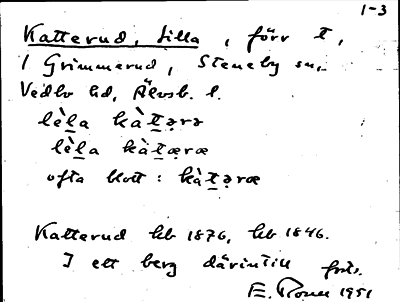 1-3
Katterud, Lilla, förr t,
/ Grimmerud, Steneby sn,
Vedbo hd, Älvsb. l.
lè̱la kàt̠ərə
lè̱la kàt̠æræ
ofta blott: kàt̠əræ
Katterud hb 1876, hb 1846.
I ett berg därintill
1951